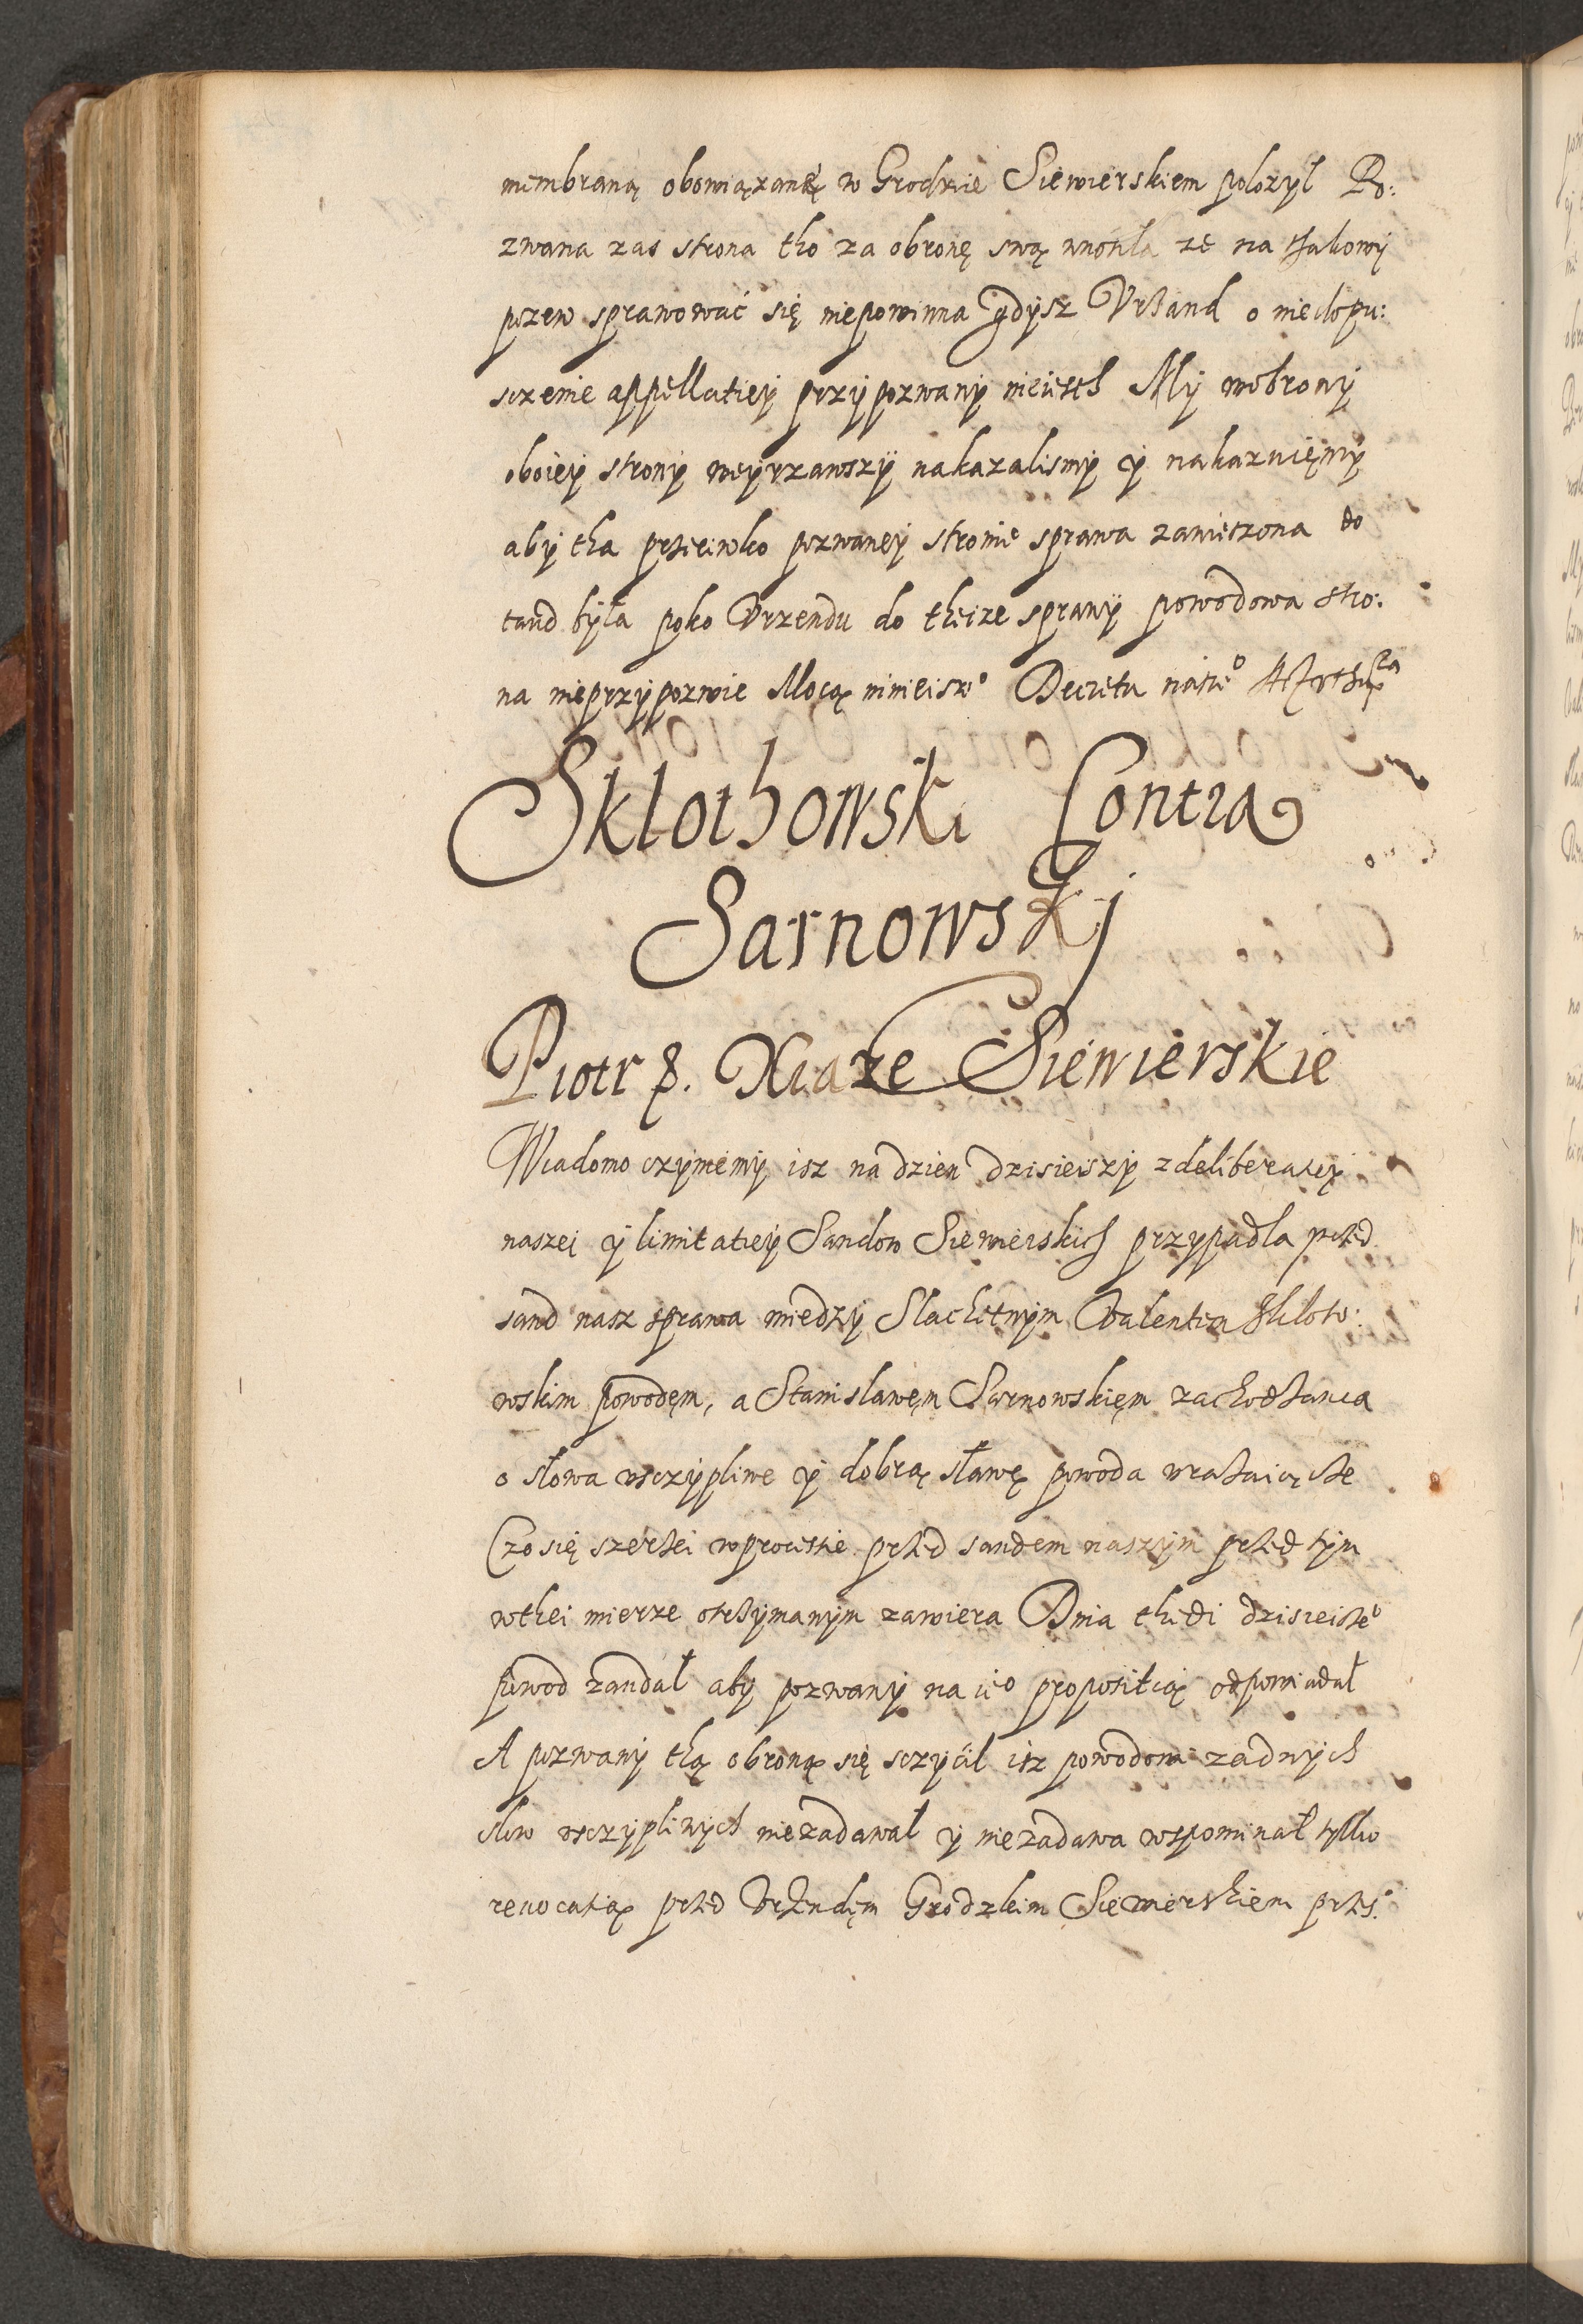 membraną obowiązaną w Grodzie Siewierskiem polozył Po:
zwana zas strona tho za obronę swą wnosiła ze na thakowy
pozew sprawować się niepowinna gdysz Vrzand o niedopu:
sczenie appellatiey przypozwany nieiesth My wobrony
oboiey strony weyrzawszy nakazalismy y nakazuięmy
aby tha przeciwko pozwaney stronie sprawa zawieszona do
tand była poko Vrzendu do theize sprawy powodowa stro:
na nieprzypozwie Mocą ninieisze° Decretu nasze°
Sklothowski Contra
Sarnowskj
Piotr &. Xiaze Siewierskie
Wiadomo czyniemy isz na dzien dzisieiszy z deliberatiey
naszei y limitatiey Sandow Siewierskich przypadła przed
sand nasz sprawa miedzy Slachetnym Walentim Skloto:
wskim powodęm, a Stanisławęm Sarnowskięm zachodzanca
o słowa usczypliwe y dobrą sławę powoda vrazaiące
Czo się szerzei w procesie przed sandem naszym przed tym
wthei mierze otrzymanym zawiera Dnia thedi dzisieisze°
powod zandał aby pozwany na ie° propositią odpowiadał
A pozwany thą obroną się sczycił isz powodowi zadnych
słow usczypliwych niezadawał y niezadawa wspominał tylko
reuocatią przed Vrzendęm Grodzkim Siewierskiem przes: